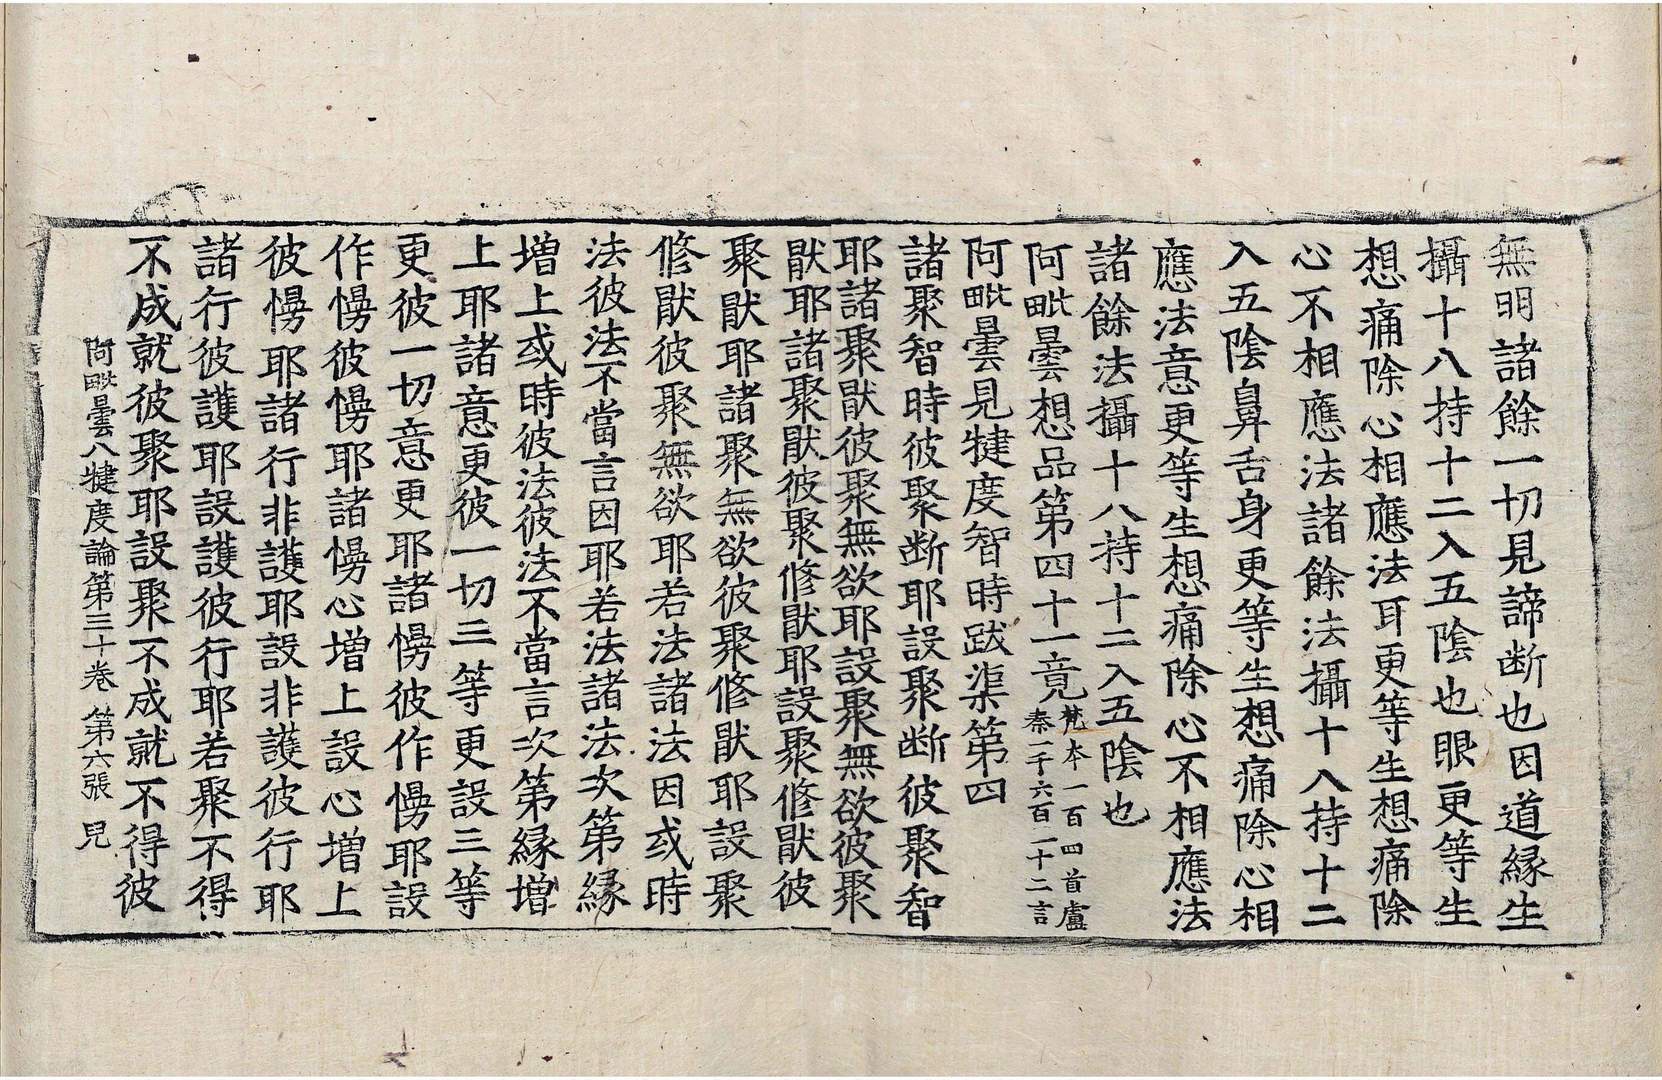 無明諸餘一切見諦断也因道緣生
攝十八持十二入五陰也眼更等生
想痛除心相應法耳更等生想痛除
心不相應法諸餘法攝十八持十二
入五陰鼻舌身更等生想痛除心相
應法意更等生想痛除心不相應法
諸餘法攝十八持十二入五陰也
阿毗曇想品第四十一竟梵本一百四首盧
秦一千六百二十二言
阿毗曇見犍度智時跋渠第四
諸聚智時彼聚断耶設聚断彼聚智
耶諸聚猒彼聚無欲耶設聚無欲彼聚
猒耶諸聚猒彼聚修猒耶設聚修猒彼
聚猒耶諸聚無欲彼聚修猒耶設聚
修猒彼聚無欲耶若法諸法因或時
法彼法不當言因耶若法諸法次第緣
增上或時彼法彼法不當言次第緣增
上耶諸意更彼一切三等更設三等
更彼一切意更耶諸憍彼作憍耶設
作憍彼憍耶諸憍心增上設心增上
彼憍耶諸行非護耶設非護彼行耶
諸行彼護耶設護彼行耶若聚不得
不成就彼聚耶設聚不成就不得彼
阿毗曇八犍度論第三十卷 第六張 皃